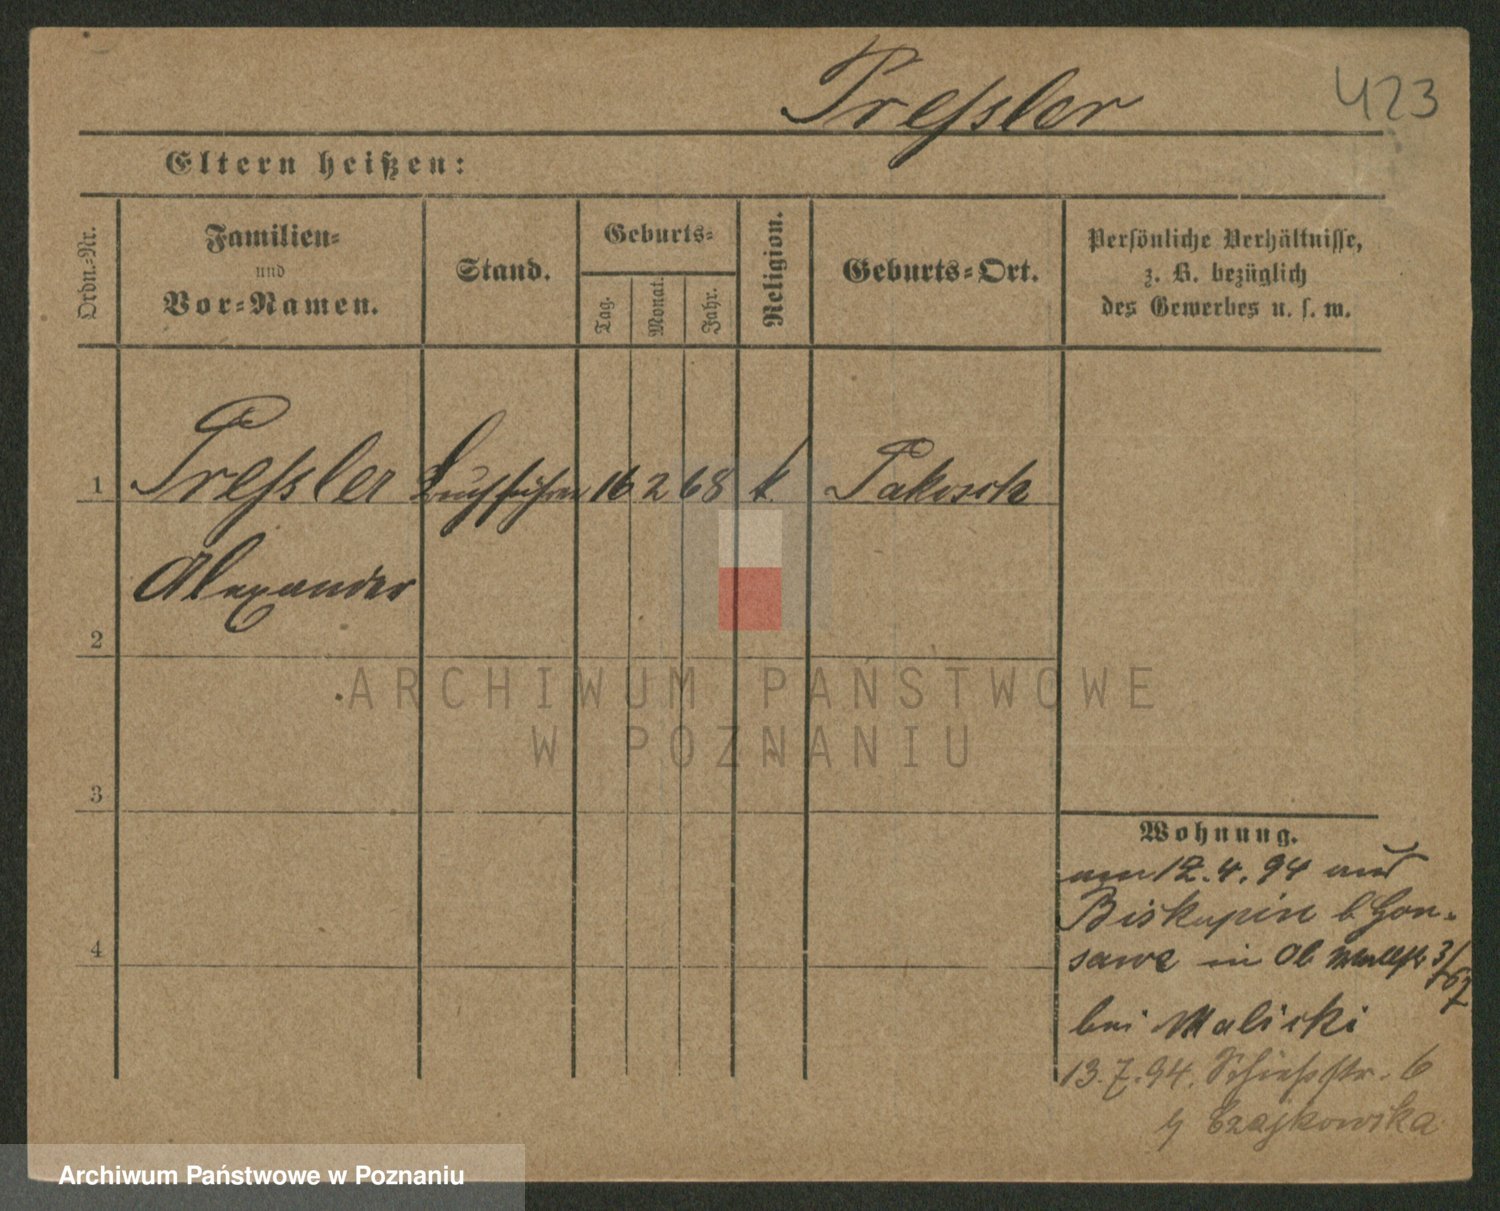 Pressler
423
Eltern heißen:
Ordn.-Nr.
Familien-
und
Vor-Namen.
Stand.
Geburts-
Tag.
Monat.
Jahr.
Religion.
Geburts-Ort.
Persönliche Verhältnisse,
z. B. bezüglich
des Gewerbes u. s. w.
1 Pressler Buchführer 16 2 68 k. Pakosch
Alexander
2
3
4
ARCHIWUM PAŃSTWOWE
W POZNANIU
Wohnung.
12.4.94 aus
Biskupin b Gon-
sawa in Ob Wallstr 3/
bei Malicki
13.7.94. Schießstr. 6
Czajkowska
Archiwum Państwowe w Poznaniu